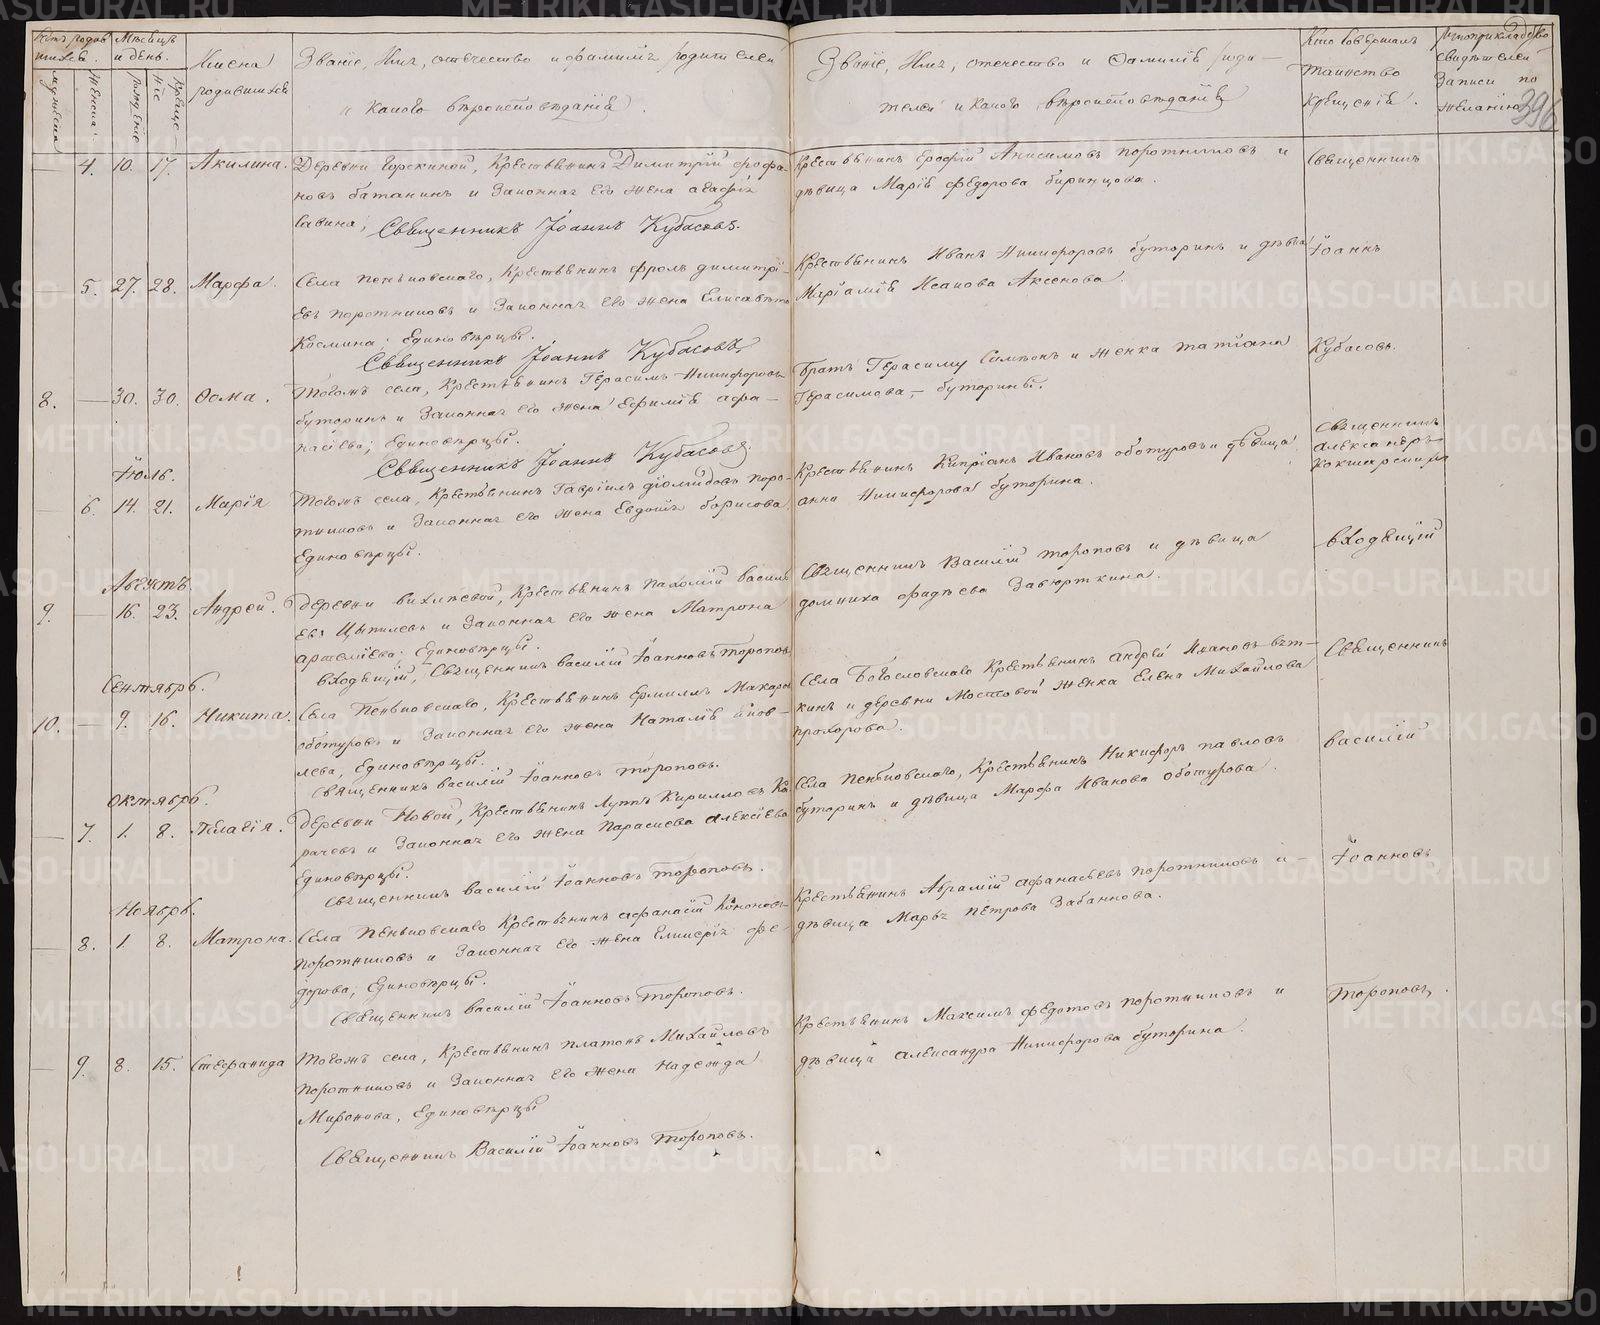 Мѣсяцъ и день.
Имена родившихся
Званіе, Имя, отечество и фамилія родителей
и какого вѣроисповѣданія.
Званіе, Имя, отечество и Фамилія
и какого вѣроисповѣданія
Кто совершалъ таинство крещенія.
свидѣтелей записи по желанію
396
4. 10. 17. Акилина.
Крестьянинъ Димитрій
и Законная его жена
Савина;
Священникъ Іоаннъ Кубасовъ.
Крестьянинъ Ерофій Анисимовъ поротниковъ и
дѣвица Марія федорова
Священникъ
5. 27. 28. Марфа.
Села пеньковскаго, Крестьянинъ фролъ димитрі-
евъ поротниковъ и Законная его жена Елисавета
Космина; Единовѣрцы.
Священникъ Іоаннъ Кубасовъ.
Крестьянинъ Иванъ Никифоровъ буторинъ и дѣвица
Маріамія Исакова Аксенова.
Іоаннъ
8. — 30. 30. Фома.
Тогожъ села, Крестьянинъ Герасимъ Никифоровъ
буторинъ и Законная его жена Ефимія афа-
насіева; Единовѣрцы.
Священникъ Іоаннъ Кубасовъ.
братъ Герасиму Сампсонъ и женка татіана
Герасимова, — буторины.
Кубасовъ.
Іюль.
6. 14. 21. Марія
Тогожъ села, Крестьянинъ Гавріилъ діомидовъ поро-
тниковъ и Законная его жена Евдокія борисова
Единовѣрцы.
Крестьянинъ Кипріанъ Ивановъ оботуровъ и дѣвица
анна Никифорова буторина.
Священникъ
александръ
Кокшарскій
Августъ.
9. — 16. 23. Андрей.
Деревни Крестьянинъ пахомій василь
евъ Цыпилевъ и Законная его жена Матрона
Единовѣрцы.
входящій, Священникъ василій Іоанновъ Тороповъ
Священникъ Василій тороповъ и дѣвица
домника фадѣева Завюрткина.
входящій
Сентябрь.
10. — 9. 16. Никита.
Села Пеньковскаго, Крестьянинъ Ермилъ Макаровъ
оботуровъ и Законная его жена Наталія яков-
лева, Единовѣрцы.
Священникъ василій Іоанновъ тороповъ.
Села Богословскаго Крестьянинъ андрей Ивановъ вят-
кинъ и деревни Мостовой женка Елена Михайлова
прохорова.
Священникъ
Октябрь.
7. 1. 8. Пелагія.
Деревни Новой, Крестьянинъ Луппъ Кирилловъ Ка
рачевъ и Законная его жена Параскева алексіева
Единовѣрцы.
Священникъ василій Іоанновъ тороповъ.
Села Пеньковскаго, Крестьянинъ Никифоръ павловъ
буторинъ и дѣвица Марфа Иванова оботурова.
василій
Ноябрь.
8. 1. 8. Матрона.
Села Пеньковскаго Крестьянинъ афанасій Кононовъ
поротниковъ и Законная его жена Гликерія фе-
дорова; Единовѣрцы.
Священникъ василій Іоанновъ Тороповъ.
Крестьянинъ Аврамій афанасьевъ поротниковъ и —
дѣвица Марья петрова Забанкова.
Іоанновъ
9. 8. 15. Стефанида
Тогожъ села, Крестьянинъ платонъ Михайловъ
поротниковъ и Законная его жена Надежда
Миронова, Единовѣрцы
Священникъ Василій Іоанновъ Тороповъ.
Крестьянинъ Максимъ федотовъ поротниковъ и
дѣвица александра Никифорова буторина.
Тороповъ.
METRIKI.GASO-URAL.RU